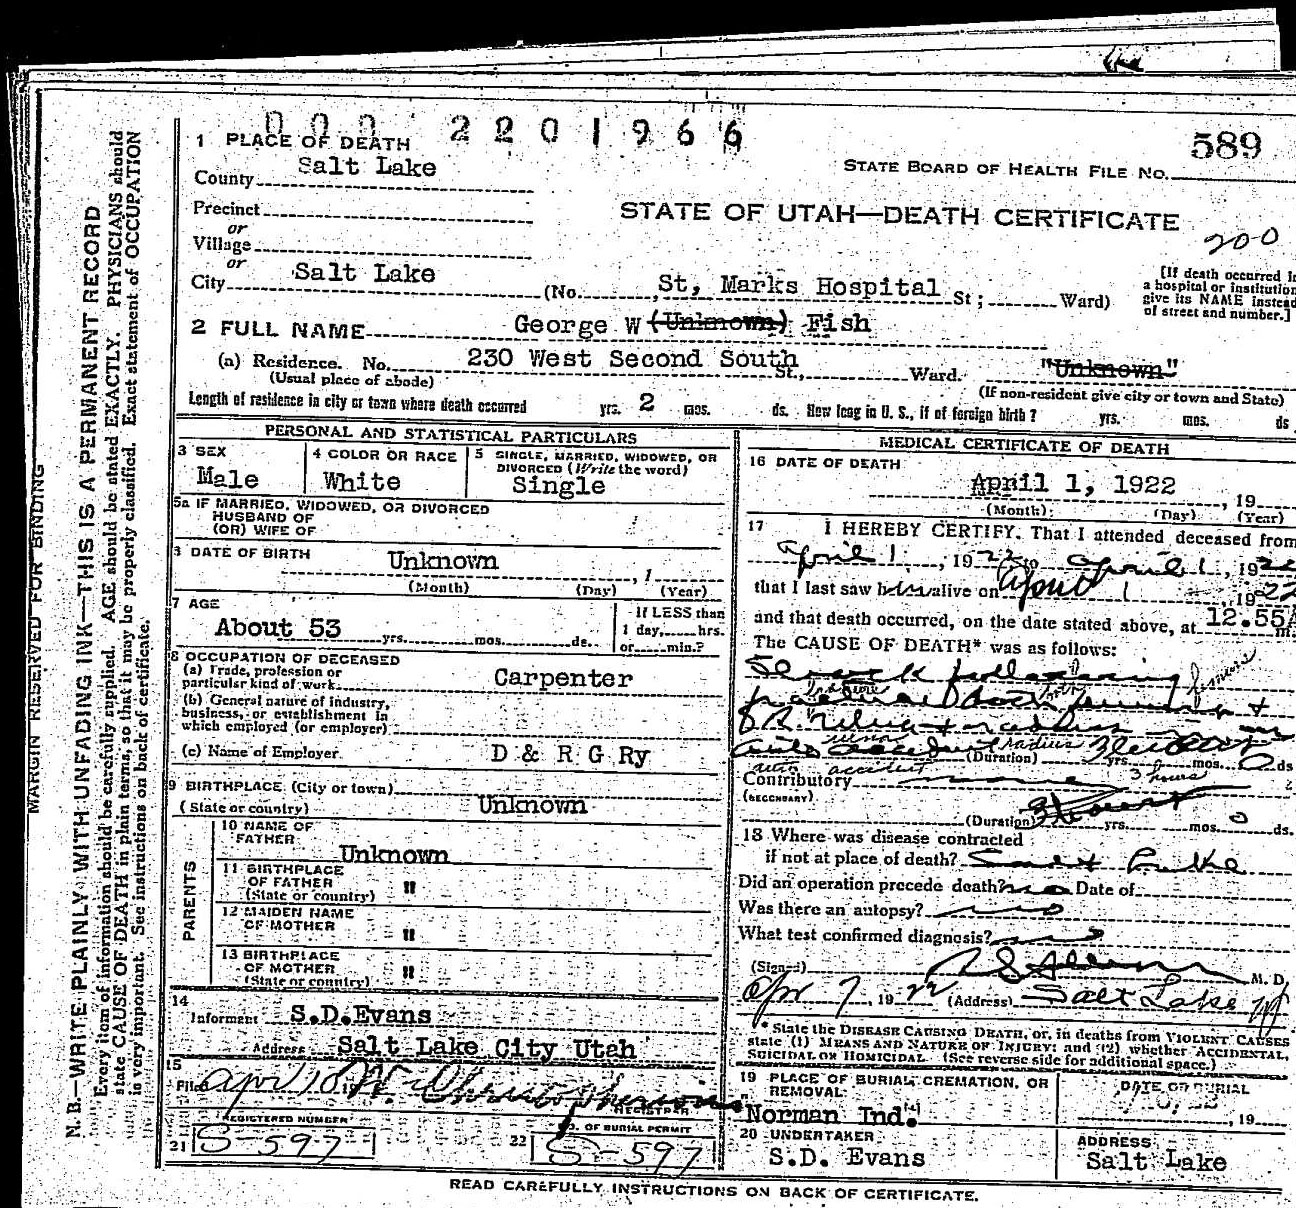 000 2201966
589
1 PLACE OF DEATH
STATE BOARD OF HEALTH FILE NO.
County Salt Lake
Precinct
or
Village
or
City Salt Lake
STATE OF UTAH—DEATH CERTIFICATE
200
(No. St, Marks Hospital St; Ward)
[If death occurred in
a hospital or institution
give its NAME instead
of street and number.]
2 FULL NAME George W (Unknown) Fish
(a) Residence. No. 230 West Second South St., Ward. "Unknown"
(Usual place of abode)
(If non-resident give city or town and State)
Length of residence in city or town where death occurred yrs. 2 mos. ds. How long in U. S., if of foreign birth? yrs. mos. ds
PERSONAL AND STATISTICAL PARTICULARS
3 SEX
Male
4 COLOR OR RACE
White
5 SINGLE, MARRIED, WIDOWED, OR
DIVORCED (Write the word)
Single
5a IF MARRIED, WIDOWED, OR DIVORCED
HUSBAND OF
(OR) WIFE OF
DATE OF BIRTH Unknown , 1
(Month) (Day) (Year)
7 AGE
About 53 yrs. mos. ds.
If LESS than
1 day, hrs.
or min.?
8 OCCUPATION OF DECEASED
(a) Trade, profession or
particular kind of work Carpenter
(b) General nature of industry,
business, or establishment in
which employed (or employer)
(c) Name of Employer D & R G Ry
9 BIRTHPLACE (City or town)
(State or country) Unknown
PARENTS
10 NAME OF
FATHER Unknown
11 BIRTHPLACE
OF FATHER "
(State or country)
12 MAIDEN NAME
OF MOTHER "
13 BIRTHPLACE
OF MOTHER "
(State or country)
14
Informant S.D.Evans
Address Salt Lake City Utah
15
Filed April 10
REGISTRAR
REGISTERED NUMBER
21 S-597
NO. OF BURIAL PERMIT
22 S-597
MEDICAL CERTIFICATE OF DEATH
16 DATE OF DEATH
April 1, 1922 , 19
(Month) (Day) (Year)
17 I HEREBY CERTIFY, That I attended deceased from
April 1 , 1922 to April 1, 1922
that I last saw him alive on April 1 1922
and that death occurred, on the date stated above, at 12.55A m.
The CAUSE OF DEATH* was as follows:
Shock following
fracture both femurs &
R. ulna & radius in
auto accident
ulna radius
(Duration) yrs. mos. 0 ds
auto accident
3 hours
Contributory none
(SECONDARY)
(Duration) yrs. mos. 0 ds.
18 Where was disease contracted
if not at place of death? Salt Lake
Did an operation precede death? no Date of
Was there an autopsy? no
What test confirmed diagnosis?
(Signed) M. D.
Apr 7 1922 (Address) Salt Lake
* State the DISEASE CAUSING DEATH, or, in deaths from VIOLENT CAUSES
state (1) MEANS AND NATURE OF INJURY; and (2) whether ACCIDENTAL,
SUICIDAL OR HOMICIDAL (See reverse side for additional space.)
19 PLACE OF BURIAL, CREMATION, OR
REMOVAL
Norman Ind.
DATE OF BURIAL
, 19
20 UNDERTAKER
S.D. Evans
ADDRESS
Salt Lake
READ CAREFULLY INSTRUCTIONS ON BACK OF CERTIFICATE.
MARGIN RESERVED FOR BINDING
N. B.—WRITE PLAINLY WITH UNFADING INK—THIS IS A PERMANENT RECORD
Every item of information should be carefully supplied. AGE should be stated EXACTLY. PHYSICIANS should
state CAUSE OF DEATH in plain terms, so that it may be properly classified. Exact statement of OCCUPATION
is very important. See instructions on back of certificate.